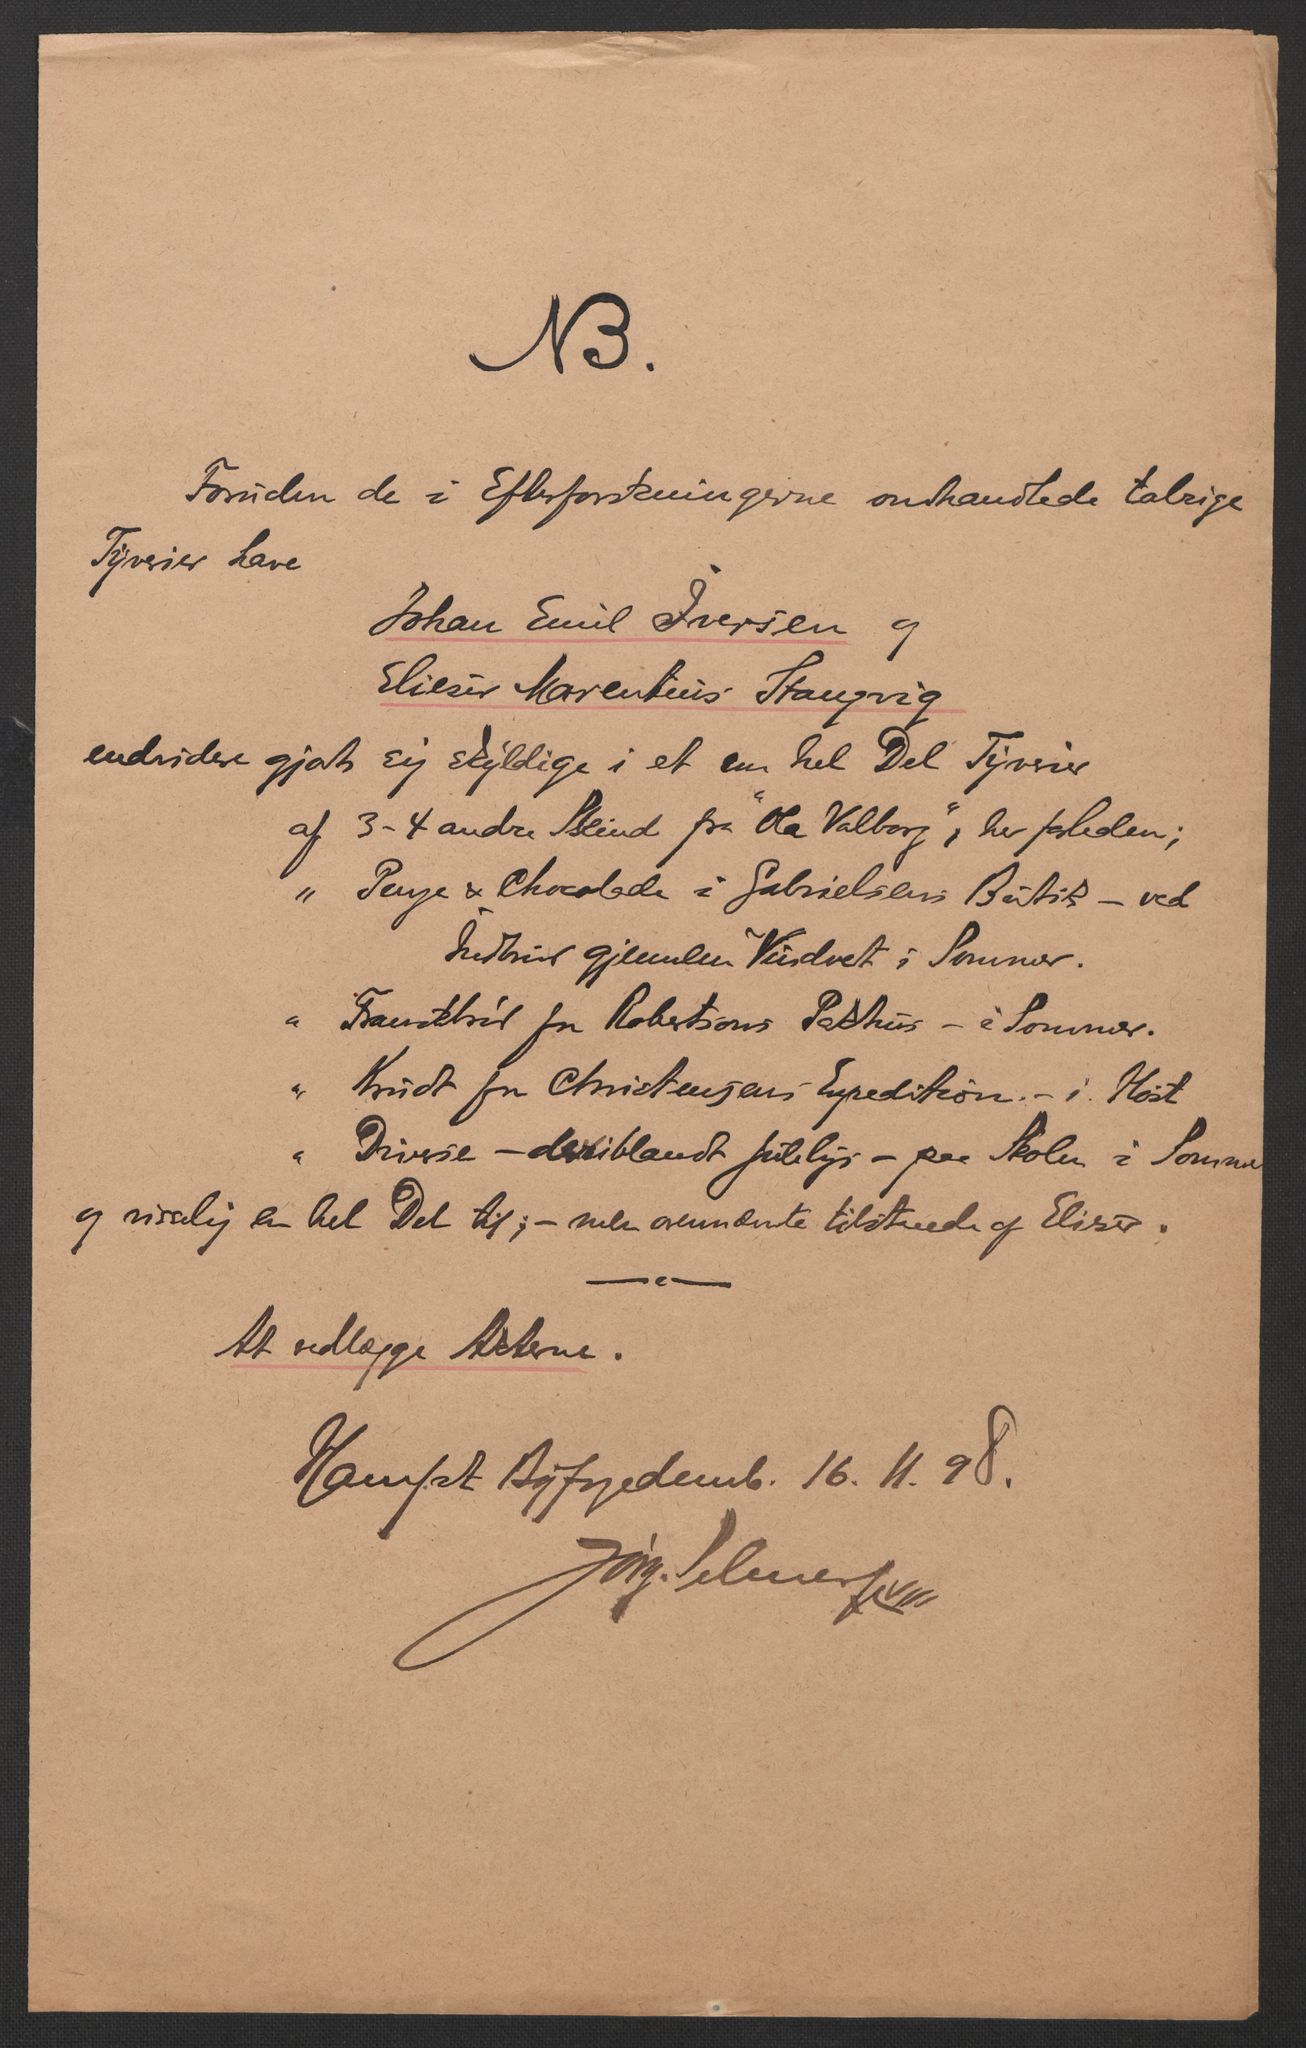 NB.
Foruden de i Efterforskningerne omhandlede talrige
Tyverier have
Johan Emil Iversen og
Elieser Marentius Stangvig
endvidere gjort sig skyldige i et en hel Del Tyverier
af 3-4 andre Skind fra "Ola Valborg", her paaleden;
" Penge & Chocolade i Gabrielsens Butik - ved
Indbrud gjennem Vinduet i Sommer.
" Franskbrød fra Robertsons Pakhus - i Sommer.
" Krudt fra Christensens Expedition. - i Høst
" Diverse - deriblandt julelys - paa Skolen i Sommer
og visselig en hel Del til; - men ovennævnte tilstaaede af Elieser.
At vedlægge Akterne.
Hamfst Byfogedemb. 16. 11. 98.
Jørg. Selmer